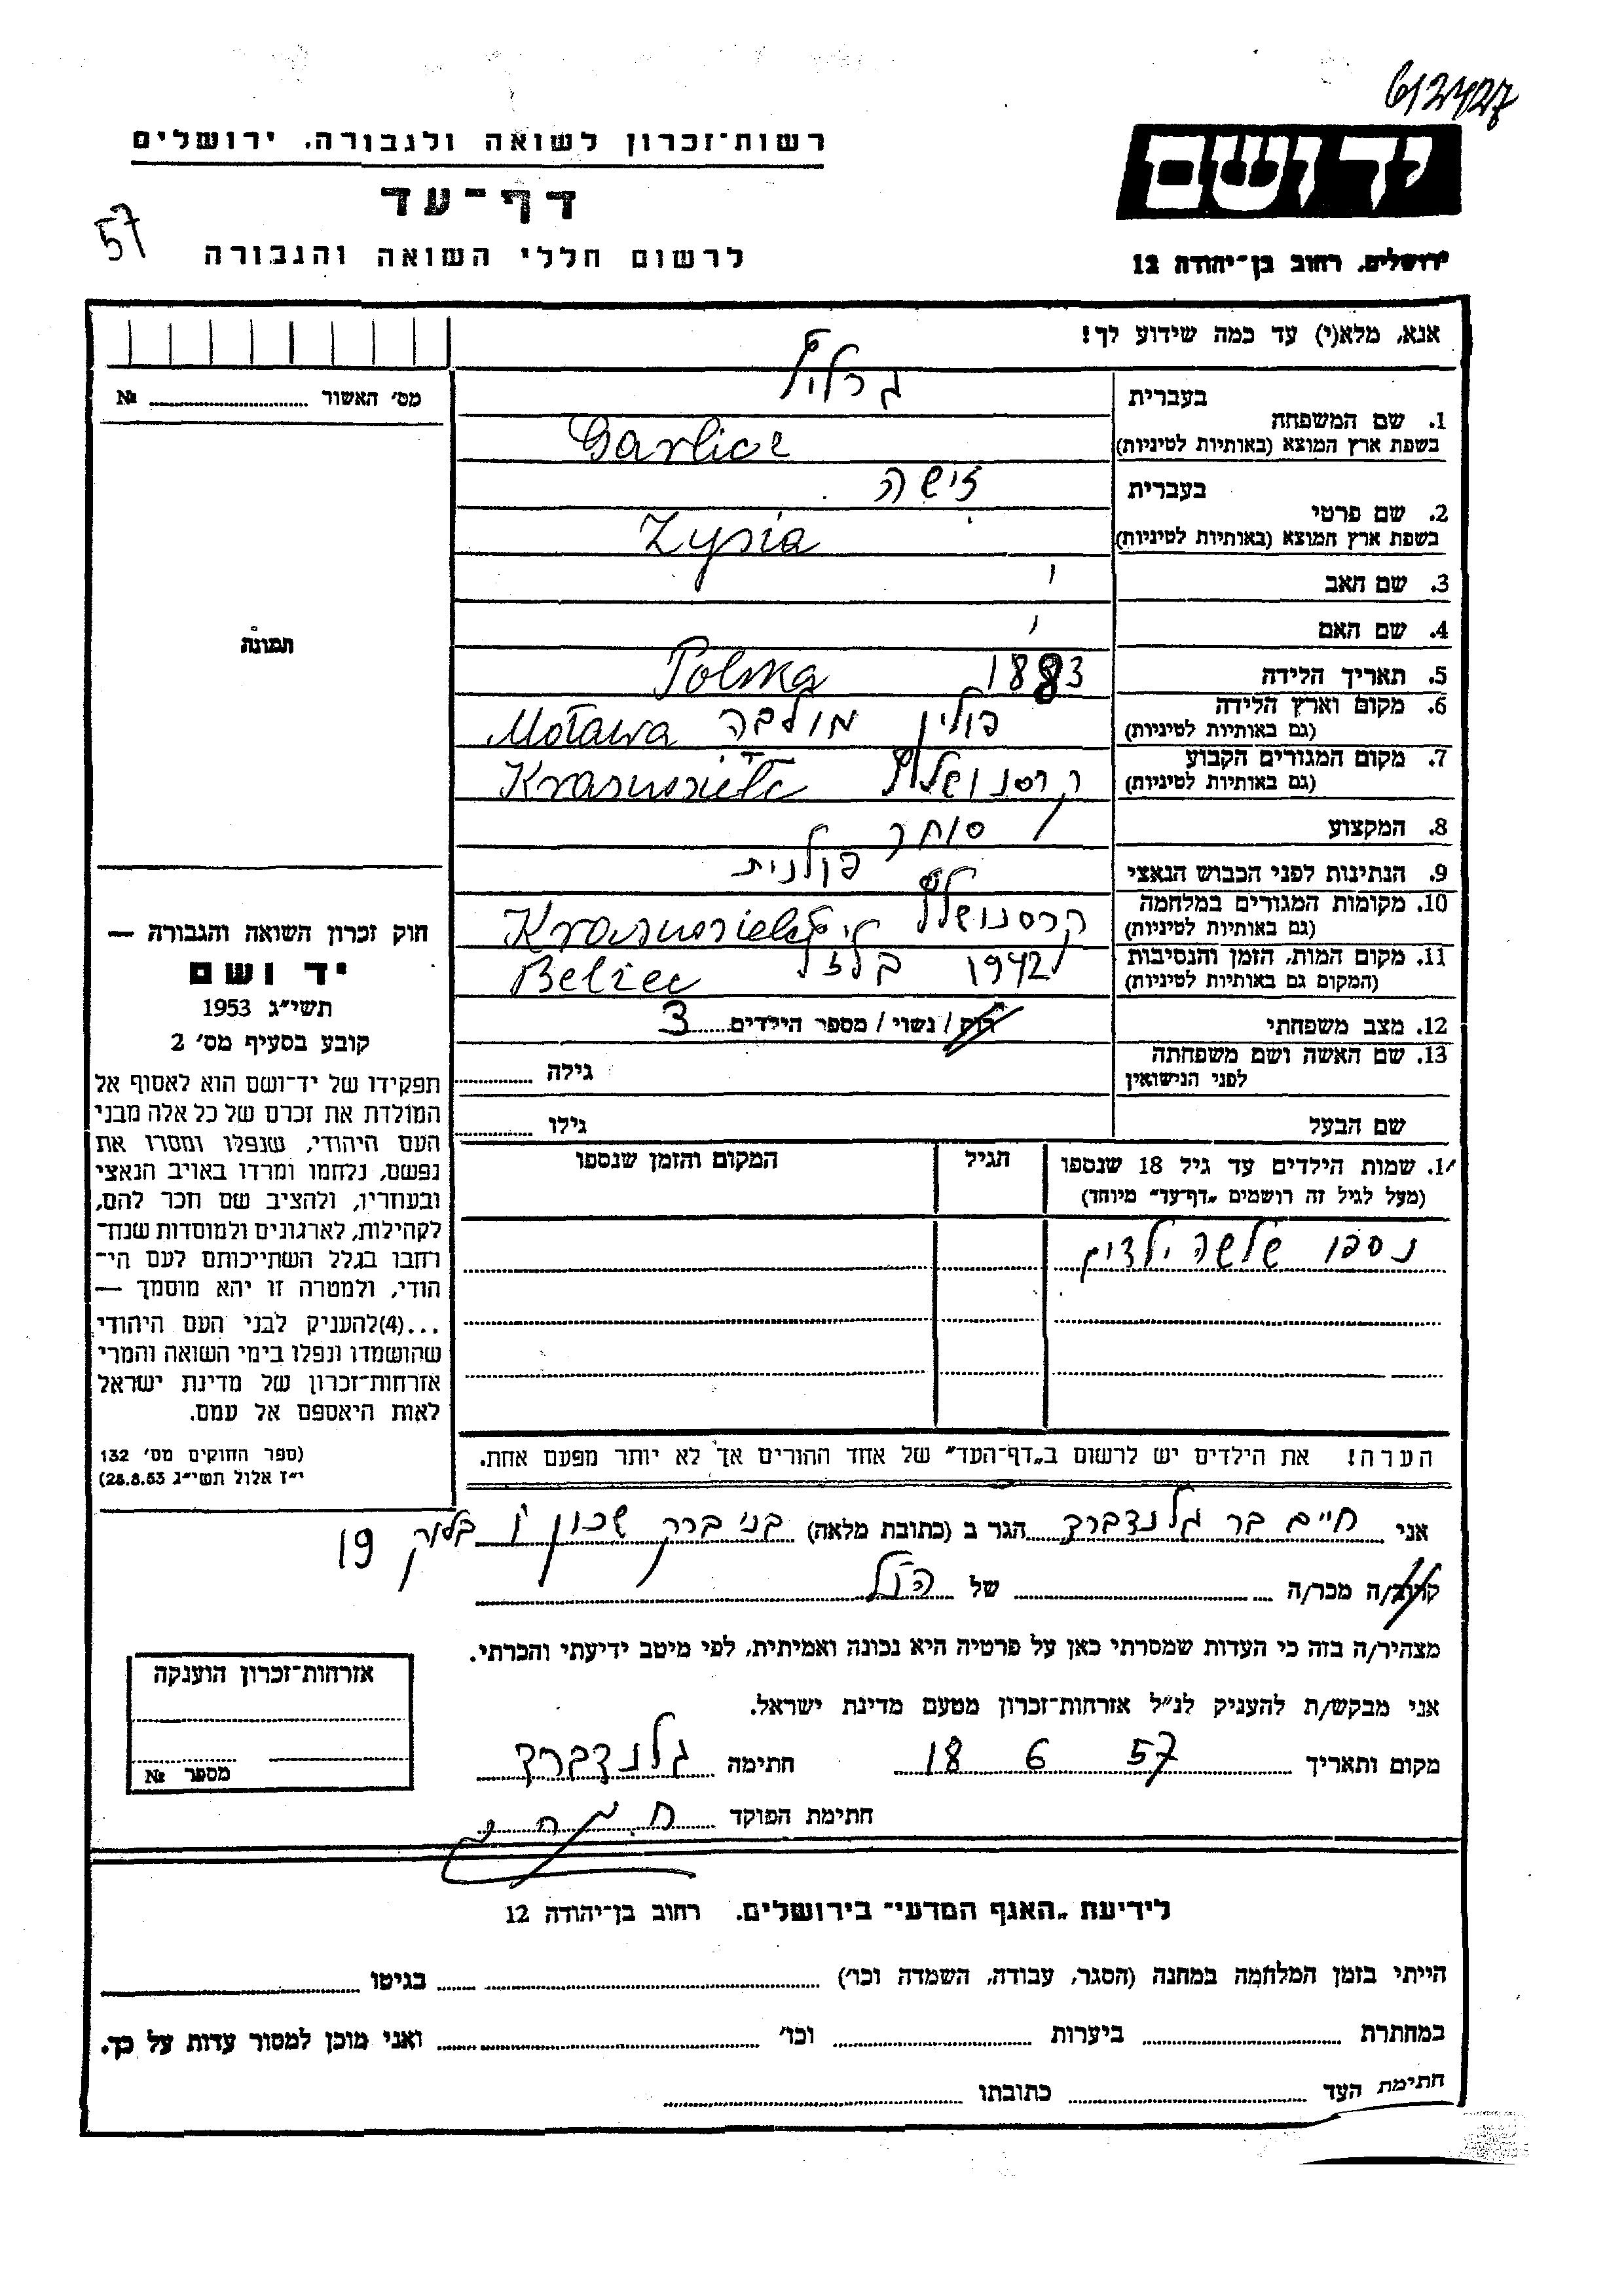 612427
רשות־זכרון לשואה ולגבורה, ירושלים
יד ושם
דף־עד
57
לרשום חללי השואה והגבורה
ירושלים, רחוב בן־יהודה 12
אנא, מלא(י) עד כמה שידוע לך!
מס׳ האשור ........ №
1. שם המשפחה
בעברית
גרליץ
בשפת ארץ המוצא (באותיות לטיניות)
Garlicz
2. שם פרטי
בעברית
זישה
בשפת ארץ המוצא (באותיות לטיניות)
Zysia
3. שם האב
4. שם האם
תמונה
5. תאריך הלידה 1883 Polska
6. מקום וארץ הלידה
(גם באותיות לטיניות)
פולין מולבה Motawa
7. מקום המגורים הקבוע
(גם באותיות לטיניות)
8. המקצוע סוחר
9. הנתינות לפני הכבוש הנאצי פולנית
10. מקומות המגורים במלחמה
(גם באותיות לטיניות)
11. מקום המות, הזמן והנסיבות
(המקום גם באותיות לטיניות)
1942 Belzec
12. מצב משפחתי רוק / נשוי / מספר הילדים 3
13. שם האשה ושם משפחתה
לפני הנישואין
גילה
שם הבעל גילו
חוק זכרון השואה והגבורה —
יד ושם
תשי״ג 1953
קובע בסעיף מס׳ 2
תפקידו של יד־ושם הוא לאסוף אל
המולדת את זכרם של כל אלה מבני
העם היהודי, שנפלו ומסרו את
נפשם, נלחמו ומרדו באויב הנאצי
ובעוזריו, ולהציב שם וזכר להם,
לקהילות, לארגונים ולמוסדות שנח־
רבו בגלל השתייכותם לעם הי־
הודי, ולמטרה זו יהא מוסמך —
...(4)להעניק לבני העם היהודי
שהושמדו ונפלו בימי השואה והמרי
אזרחות־זכרון של מדינת ישראל
לאות היאספם אל עמם.
(ספר החוקים מס׳ 132
י״ז אלול תשי״ג 28.8.53)
שמות הילדים עד גיל 18 שנספו
(מעל לגיל זה רושמים „דף־עד״ מיוחד)
הגיל
המקום והזמן שנספו
נספו שלשה ילדים
הערה! את הילדים יש לרשום ב„דף־העד״ של אחד ההורים אך לא יותר מפעם אחת.
אני חיים בר גלנדברד הגר ב (כתובת מלאה) בני ברק שכון ו בלוק 19
קרוב/ה מכר/ה של הנ״ל
מצהיר/ה בזה כי העדות שמסרתי כאן על פרטיה היא נכונה ואמיתית, לפי מיטב ידיעתי והכרתי.
אני מבקש/ת להעניק לנ״ל אזרחות־זכרון מטעם מדינת ישראל.
מקום ותאריך 18 6 57 חתימה גלנדברד
חתימת הפוקד
אזרחות־זכרון הוענקה
מספר №
לידיעת „האגף המדעי״ בירושלים. רחוב בן־יהודה 12
הייתי בזמן המלחמה במחנה (הסגר, עבודה, השמדה וכו׳) בגיטו
במחתרת ביערות וכו׳ ואני מוכן למסור עדות על כך.
חתימת העד כתובתו